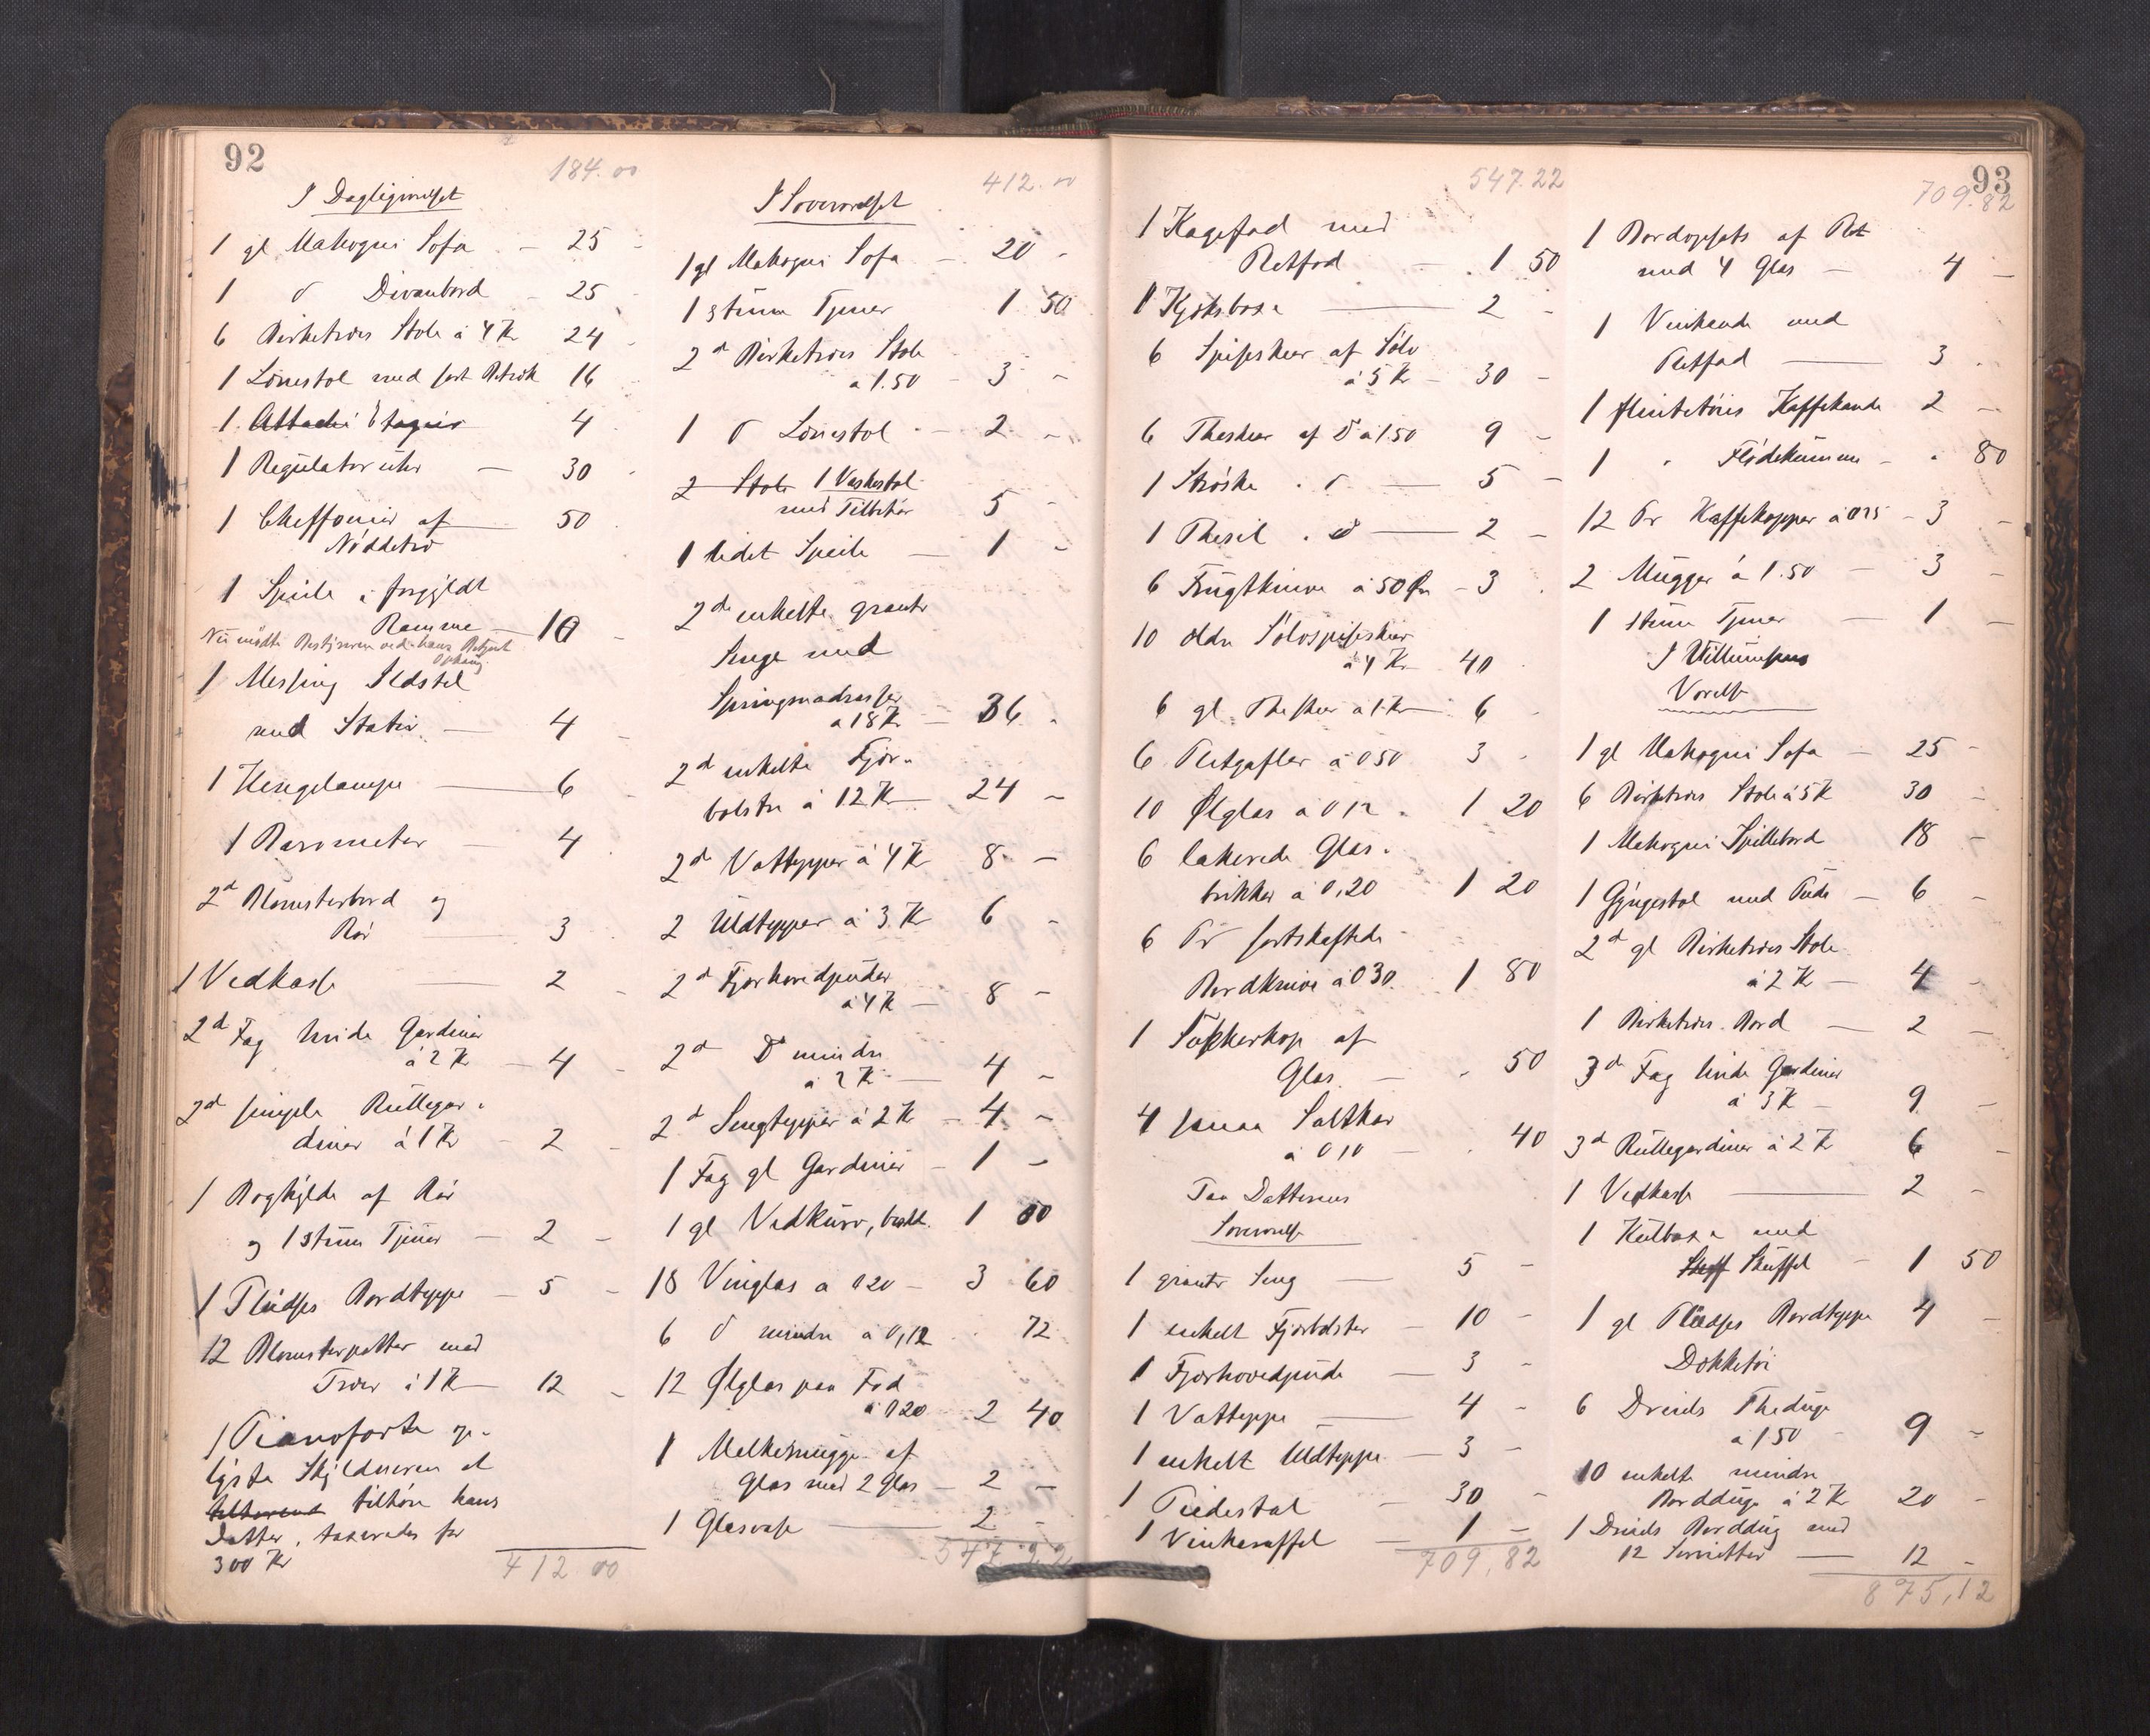 92
184.00
I Dagligverelset
1 gl Mahogni Sofa – 25 –
1 d Divanbord – 25 –
6 Birketræs Stole à 4 Kr 24 –
1 Lænestol med sort Betræk 16
1 Attache Etagier 4
1 Regulatoruhr – 30 –
1 Cheffonier af 50
Nöddetræ
1 Speile i forgyldt
Ramme 10 –
Nu mødte Bestyreren ved hans
1 Messing Ildstel
med Stativ – 4 –
1 Hengelampe – 6 –
1 Barometer – 4
2d Blomsterbord og
Rör – 3
1 Vedkasse – 2 –
2d Fag hvide Gardiner
à 2 Kr – 4 –
2d simple Rullegar-
diner à 1 Kr – 2 –
1 Boghylde af Rör
og 1 stum Tjener – 2 –
1 Pludses Bordteppe – 5 –
12 Blomsterpotter med
Træer à 1 Kr – 12 –
1 Pianoforte op-
lyste Skyldneren at
tilhörende tilhöre hans
Datter, taxeredes for
300 Kr
412 00
412.00
I Soververelset
1 gl Mahogni Sofa – 20 –
1 stum Tjener 1 50
2d Birketræs Stole
a 1.50 – 3 –
1 d Lænestol – 2 –
2 Stole 1 Vaskestol
med Tilbehör 5 –
1 lidet Speile – 1 –
2de enkelte grantr
Senge med
Springmadrasser
a 18 Kr – 36 –
2d enkelte Fjær-
bolstre à 12 Kr 24 –
2de Vattepper à 4 Kr 8 –
2 Uldtepper à 3 Kr 6 –
2d Fjærhovedpuder
à 4 Kr – 8 –
2d D mindre
a 2 Kr – 4 –
2d Sengtepper à 2 Kr – 4 –
1 Fag gl Gardiner – 1 –
1 gl Vedkurv, 1 00
18 Vinglas a 020 – 3 60
6 d mindre a 0,12 72
12 Ølglas paa Fod
à 020 2 40
1 Melkemugge af
Glas med 2 Glas – 2 –
1 Glasvase – 2 –
547 22
547.22
1 Kagefad med
Pletfod – 1 50
1 Kjæksboxe – 2 –
6 Spiseskeer af Sölv
à 5 Kr – 30 –
6 Theskeer af D a 1.50 9 –
1 Ströske d – 5 –
1 Thesil d – 2 –
6 Frugtknive à 50 Øre – 3
10 eldre Sölvspiseskeer
à 4 Kr 40
6 gl Theskeer a 1 Kr 6
6 Pletgafler à 050 3 –
10 Ølglas a 0 12 1 20
6 lakerede Glas-
brikker a 0,20 1 20
6 Pr sortskaftede
Bordknive à 030 1 80
1 Sukkerkop af
Glas – 50
4 smaa Saltkar
à 010 – 40
Paa Datterens
Soververelse
1 grantr Seng – 5 –
1 enkelt Fjærbolster – 10 –
1 Fjærhovedpude – 3 –
1 Vatteppe – 4 –
1 enkelt Uldteppe – 3 –
1 Piedestal – 30 –
1 Vinkaraffel – 1 –
709,82
93
709.82
1 Bordopsats af Plet
med 4 Glas – 4 –
1 Vinkande med
Pletfad – 3
1 flintetöies Kaffekande 2 –
1 " Flödekumme – 80
12 Pr Kaffekopper à 025 – 3 –
2 Mugger à 1.50 – 3 –
1 stum Tjener – 1 –
I Villumsens
Verelse
1 gl Mahogni Sofa – 25 –
6 Birketræs Stole à 5 K 30 –
1 Mahogni Spillebord 18 –
1 Gyngestol med Pude – 6 –
2d gl Birketræs Stole
à 2 K – 4 –
1 Birketræs Bord – 2 –
3de Fag hvide Gardiner
à 3 K – 9 –
3d Rullegardiner à 2 K 6 –
1 Vedkasse – 2 –
1 Kulboxe med
Skuffel – 1 50
1 gl Pludses Bordteppe 4 –
Dækketöi
6 Dreiels Theduge
a 1.50 – 9 –
10 enkelte mindre
Bordduge à 2 Kr 20 –
1 Dreiels Borddug med
12 Servietter – 12 –
875,12